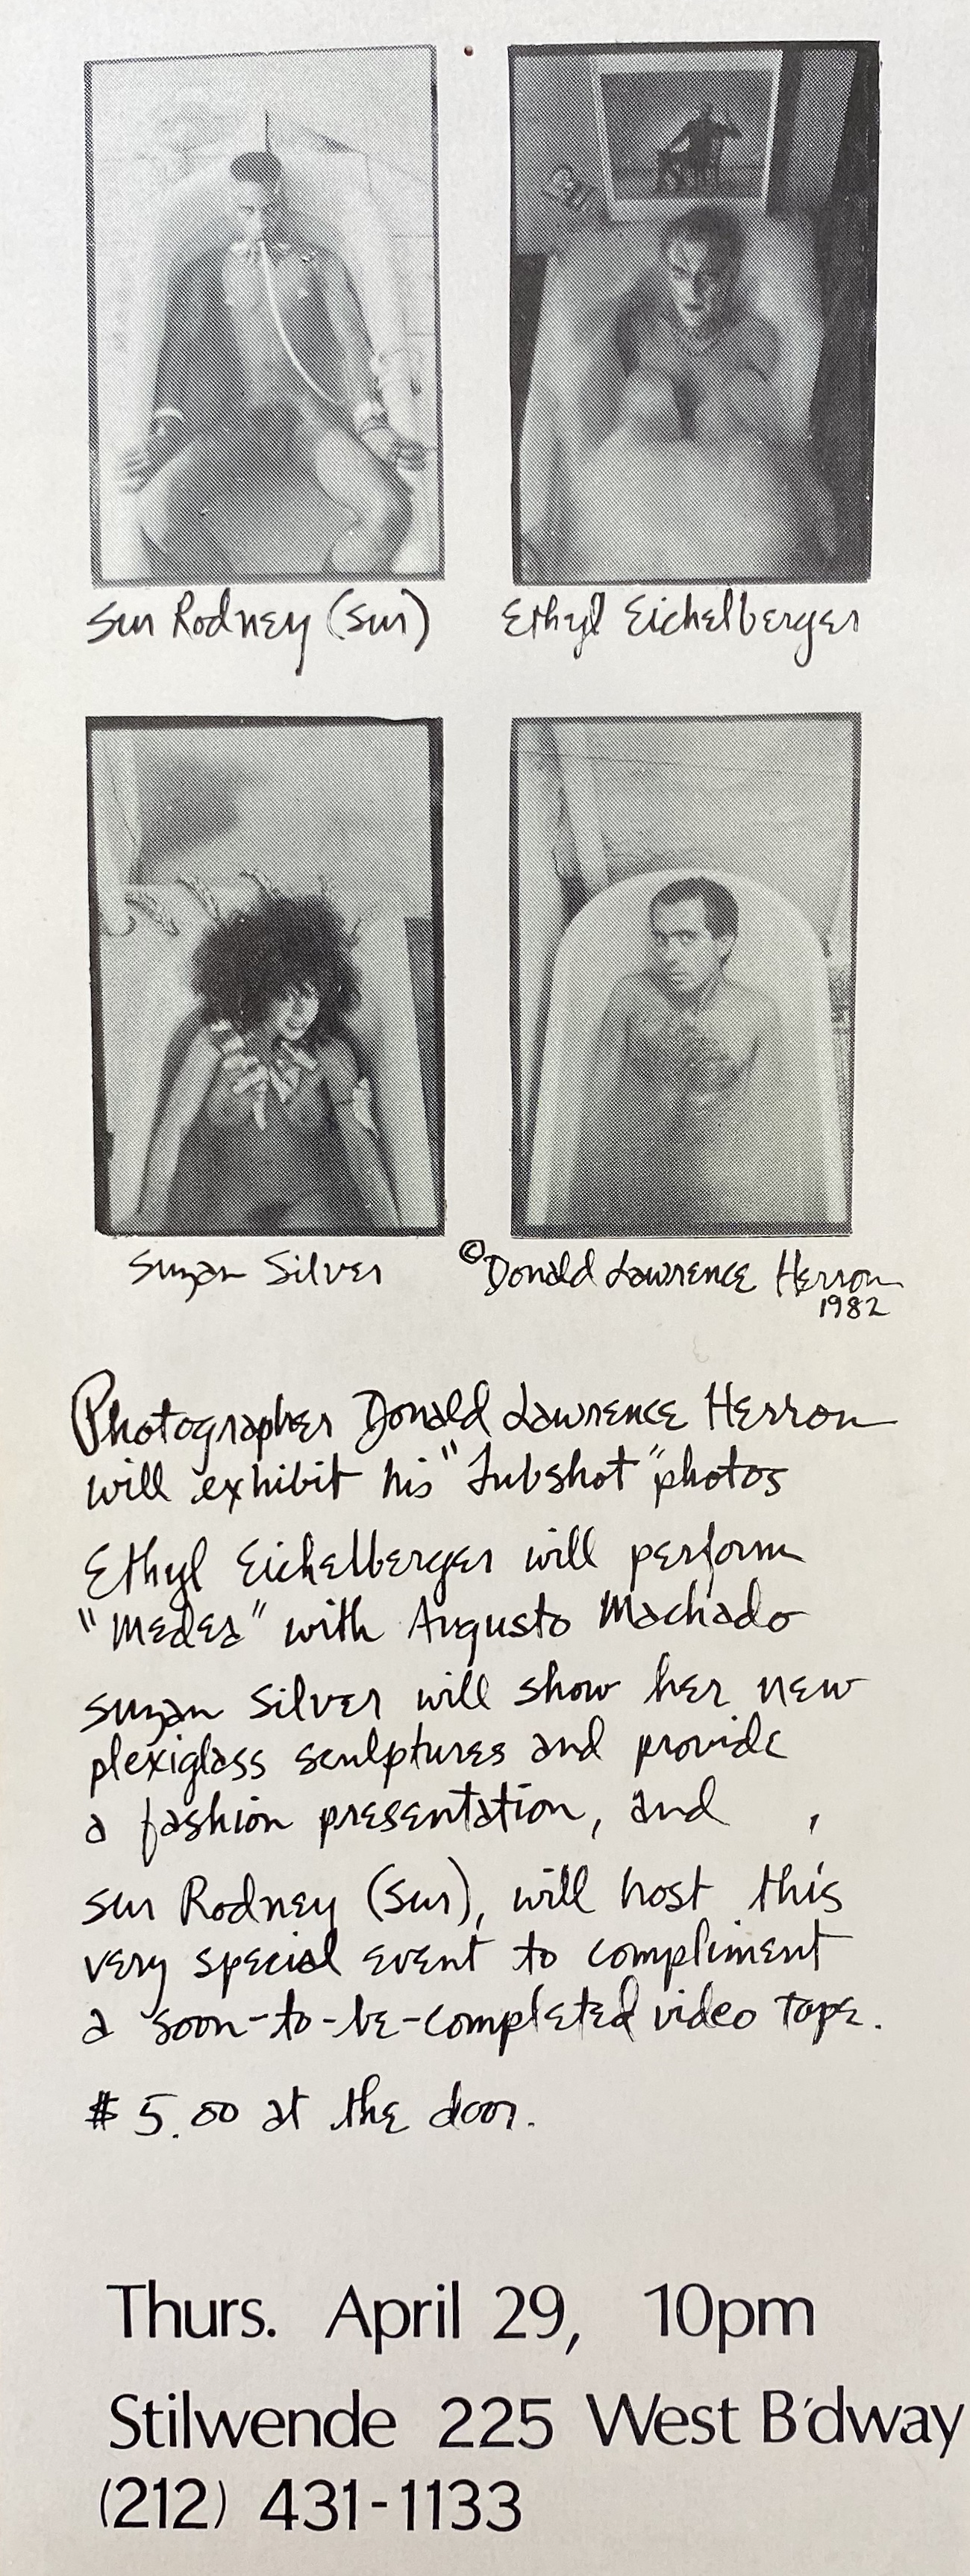 Sur Rodney (Sur)
Ethyl Eichelberger
Suzan Silver
©Donald Lawrence Herron
1982
Photographer Donald Lawrence Herron
will exhibit his "Tubshot" photos
Ethyl Eichelberger will perform
"Medea" with Augusto Machado
Suzan Silver will show her new
plexiglass sculptures and provide
a fashion presentation, and ,
Sur Rodney (Sur), will host this
very special event to compliment
a soon-to-be-completed video tape.
$5.00 at the door.
Thurs. April 29, 10pm
Stilwende 225 West B'dway
(212) 431-1133